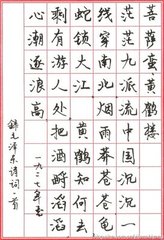 菩萨蛮黄鹤楼
茫茫九派流中国沉沉一
线穿南北烟雨莽苍苍龟
蛇锁大江黄鹤知何去
剩有游人处把酒酹滔滔
心潮逐浪高
一九二七年春
錄毛泽东诗词一首